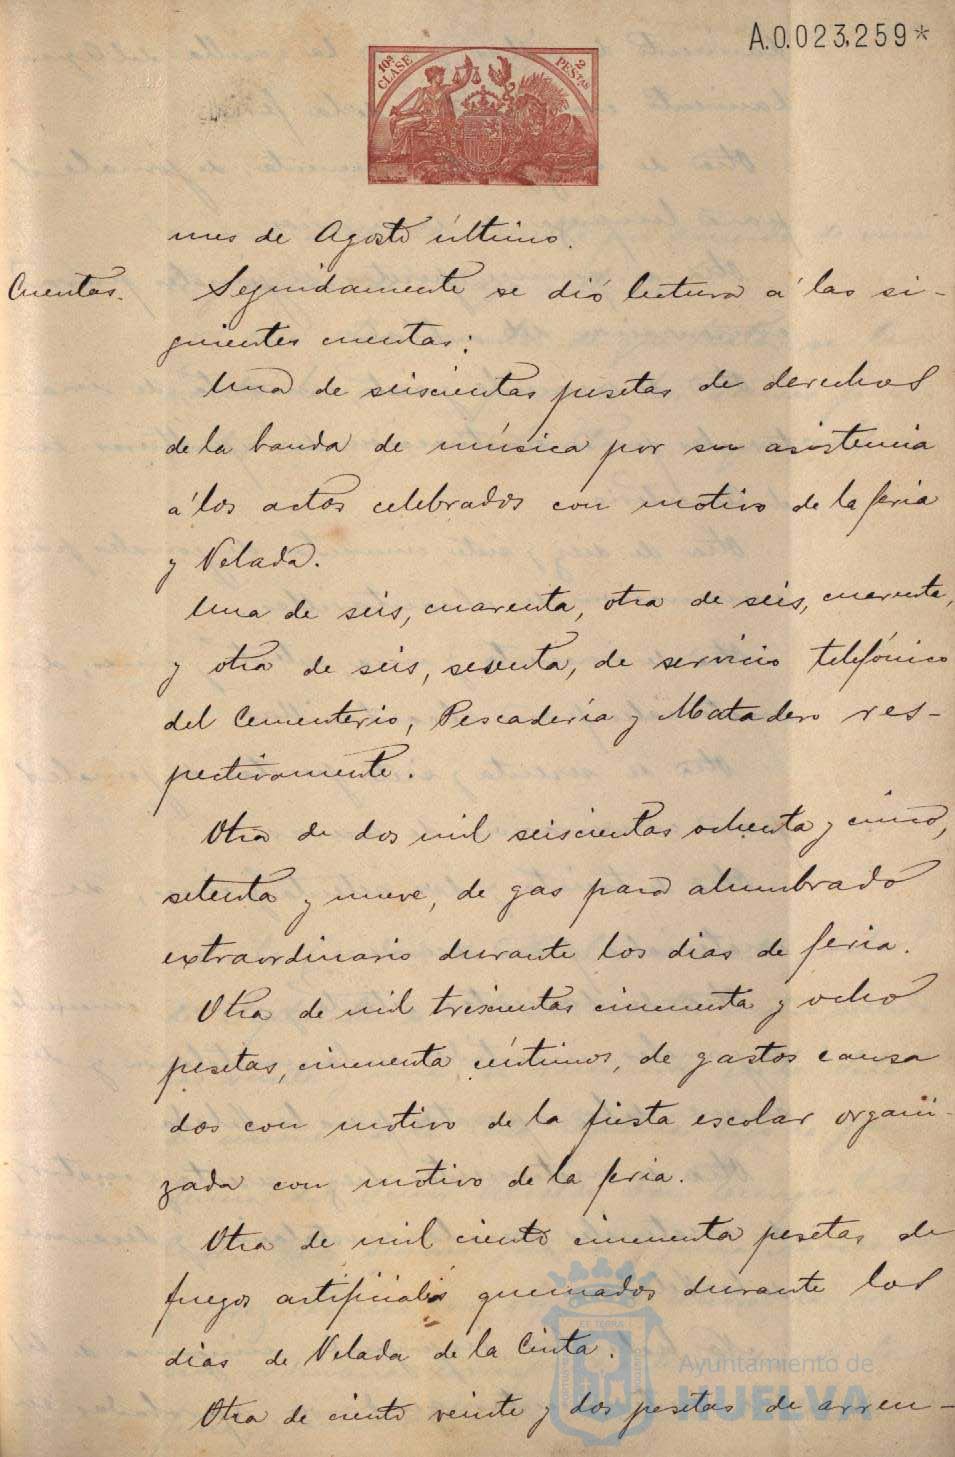 A.0.023,259*
10ª CLASE
2 PESTAS
mes de Agosto último.
Cuentas.
Seguidamente se dió lectura á las si-
guientes cuentas:
Una de seiscientas pesetas de derechos
de la banda de música por su asistencia
á los actos celebrados con motivo de la feria
y Velada.
Una de seis, cuarenta, otra de seis, cuarenta,
y otra de seis, sesenta, de servicio telefónico
del Cementerio, Pescadería y Matadero res-
pectivamente.
Otra de dos mil seiscientas ochenta y cinco,
setenta y nueve, de gas para alumbrado
extraordinario durante los dias de feria.
Otra de mil trescientas cincuenta y ocho
pesetas, cincuenta céntimos, de gastos causa
dos con motivo de la fiesta escolar organi-
zada con motivo de la feria.
Otra de mil ciento cincuenta pesetas de
fuegos artificiales quemados durante los
dias de Velada de la Cinta.
Otra de ciento veinte y dos pesetas de arren-
Ayuntamiento de
HUELVA